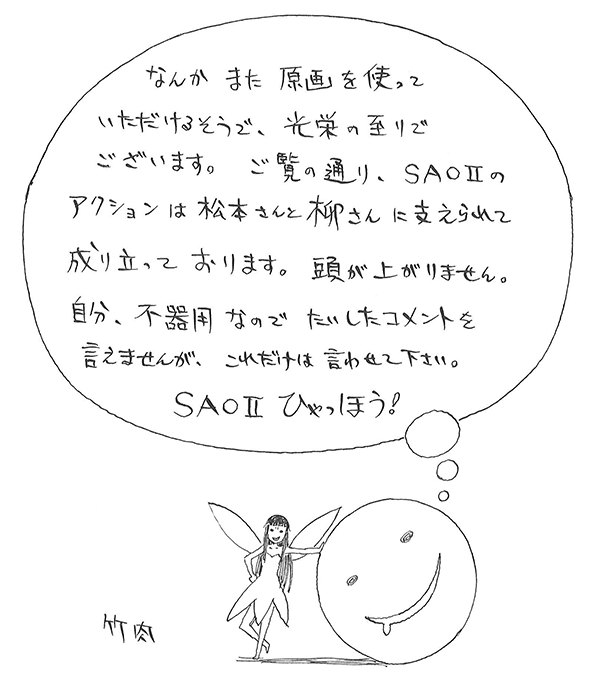 なんか また 原画を使って
いただけるそうで、光栄の至りで
ございます。 ご覧の通り、SAOⅡの
アクションは松本さんと柳さんに支えられて
成り立って おります。 頭が上がりません。
自分、不器用なので たいしたコメントを
言えませんが、これだけは言わせて下さい。
SAOⅡ ひゃっほう!
竹肉